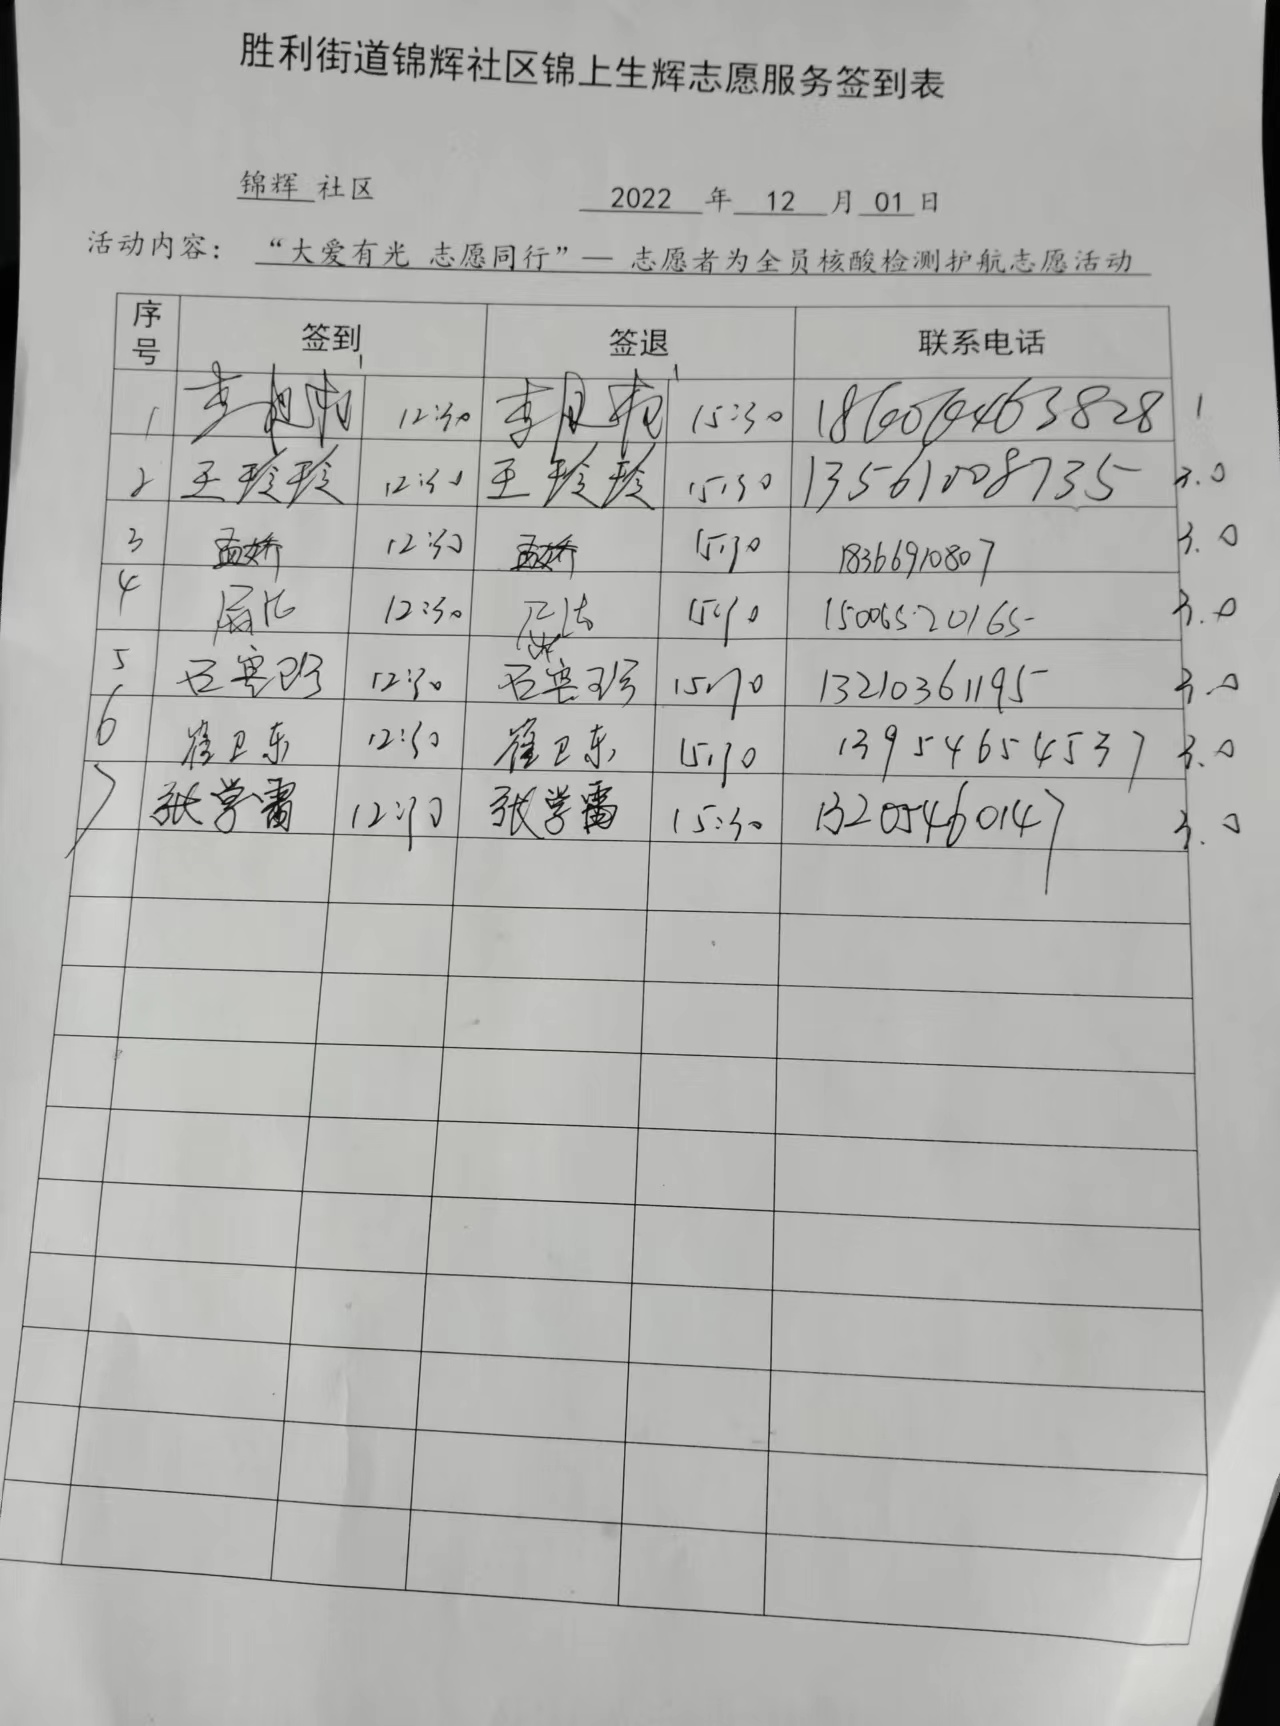 胜利街道锦辉社区锦上生辉志愿服务签到表
锦辉 社区 2022 年 12 月 01 日
活动内容： “大爱有光 志愿同行”— 志愿者为全员核酸检测护航志愿活动
序号 签到 签退 联系电话
1 12:30 15:30 1
2 王玲玲 12:30 王玲玲 15:30 13561008735 3.0
3 孟娇 12:30 孟娇 15:30 18366910807 3.0
4 12:30 15:30 15006520165 3.0
5 12:30 15:30 13210361195 3.0
6 崔卫东 12:30 崔卫东 15:30 13954654537 3.0
7 张学雷 12:30 张学雷 15:30 13205460147 3.0